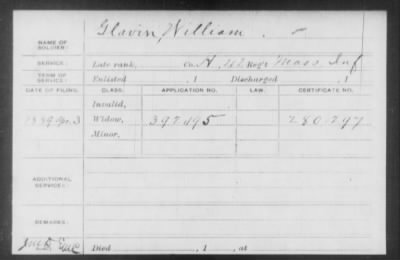 NAME OF SOLDIER: Glavin, William
SERVICE: Late rank, Co. A, Reg't Mass Inf
TERM OF SERVICE: Enlisted , 1 Discharged , 1
DATE OF FILING. CLASS. APPLICATION NO. LAW. CERTIFICATE NO.
Invalid,
Widow, 397495 280797
Minor,
ADDITIONAL SERVICE:
REMARKS:
Died , 1 , at